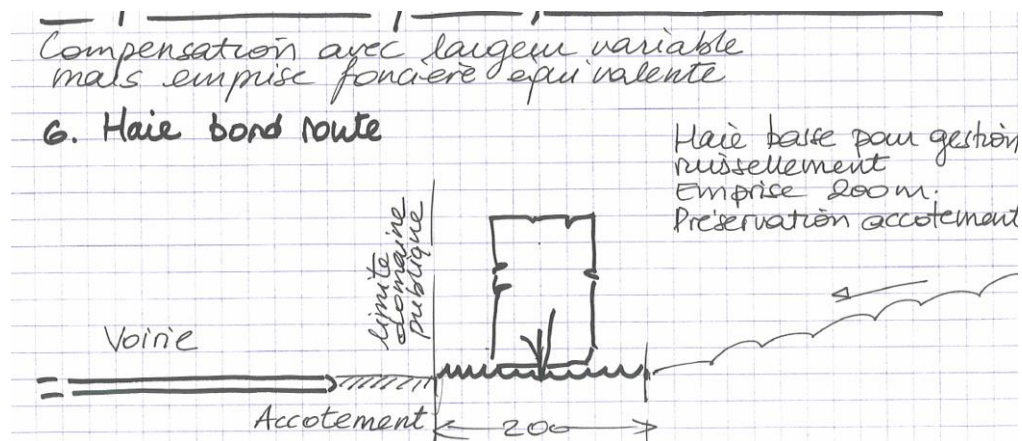 Compensation avec largeur variable
mais emprise foncière équivalente
6. Haie bord route
Haie basse pour gestion
ruissellement
Emprise 200m.
Préservation accotement
limite
domaine
publique
Voirie
Accotement
200